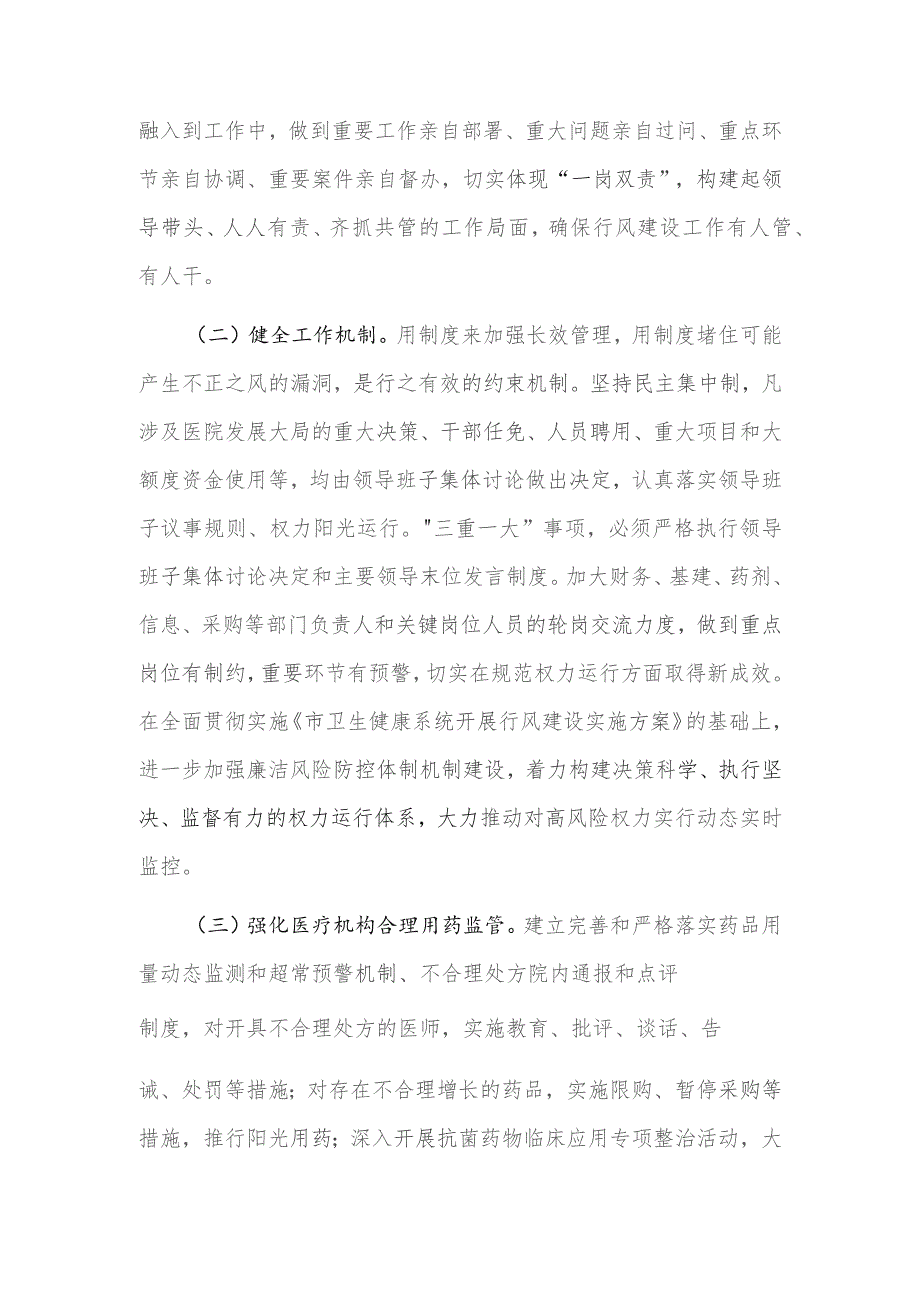 融入到工作中，做到重要工作亲自部署、重大问题亲自过问、重点环
节亲自协调、重要案件亲自督办，切实体现“一岗双责”，构建起领
导带头、人人有责、齐抓共管的工作局面，确保行风建设工作有人管、
有人干。
（二）健全工作机制。用制度来加强长效管理，用制度堵住可能
产生不正之风的漏洞，是行之有效的约束机制。坚持民主集中制，凡
涉及医院发展大局的重大决策、干部任免、人员聘用、重大项目和大
额度资金使用等，均由领导班子集体讨论做出决定，认真落实领导班
子议事规则、权力阳光运行。"三重一大”事项，必须严格执行领导
班子集体讨论决定和主要领导末位发言制度。加大财务、基建、药剂、
信息、采购等部门负责人和关键岗位人员的轮岗交流力度，做到重点
岗位有制约，重要环节有预警，切实在规范权力运行方面取得新成效。
在全面贯彻实施《市卫生健康系统开展行风建设实施方案》的基础上，
进一步加强廉洁风险防控体制机制建设，着力构建决策科学、执行坚
决、监督有力的权力运行体系，大力推动对高风险权力实行动态实时
监控。
（三）强化医疗机构合理用药监管。建立完善和严格落实药品用
量动态监测和超常预警机制、不合理处方院内通报和点评
制度，对开具不合理处方的医师，实施教育、批评、谈话、告
诫、处罚等措施；对存在不合理增长的药品，实施限购、暂停采购等
措施，推行阳光用药；深入开展抗菌药物临床应用专项整治活动，大